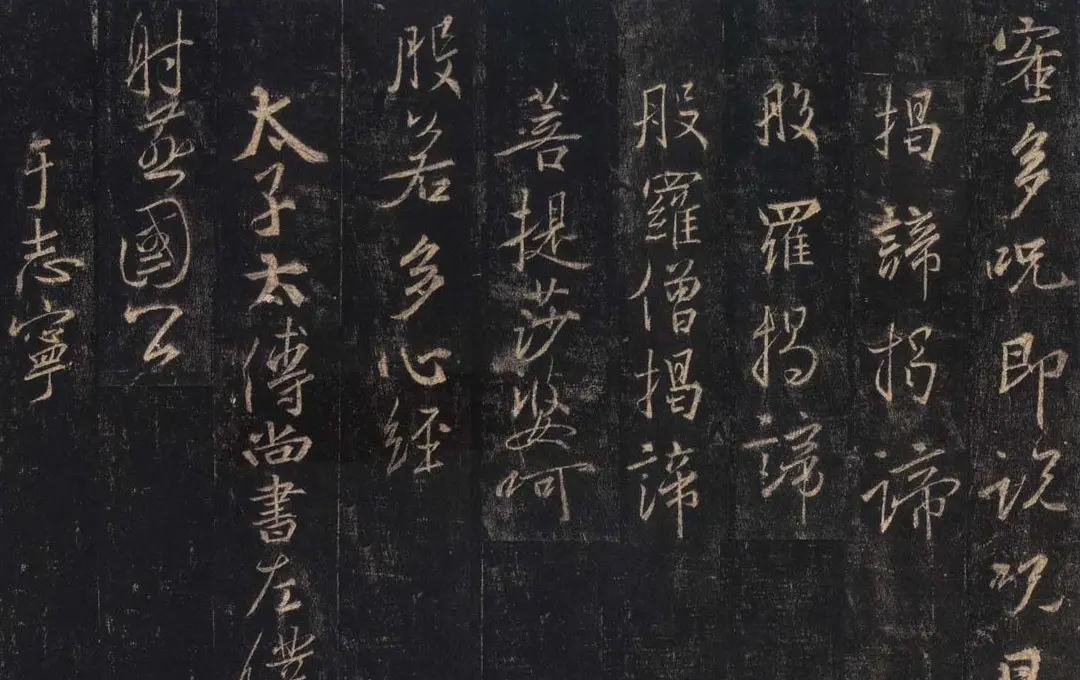 蜜多咒即説咒曰
揭諦揭諦
般羅揭諦
般羅僧揭諦
菩提莎婆呵
般若多心經
太子太傅尚書左僕
射燕國公
于志寧